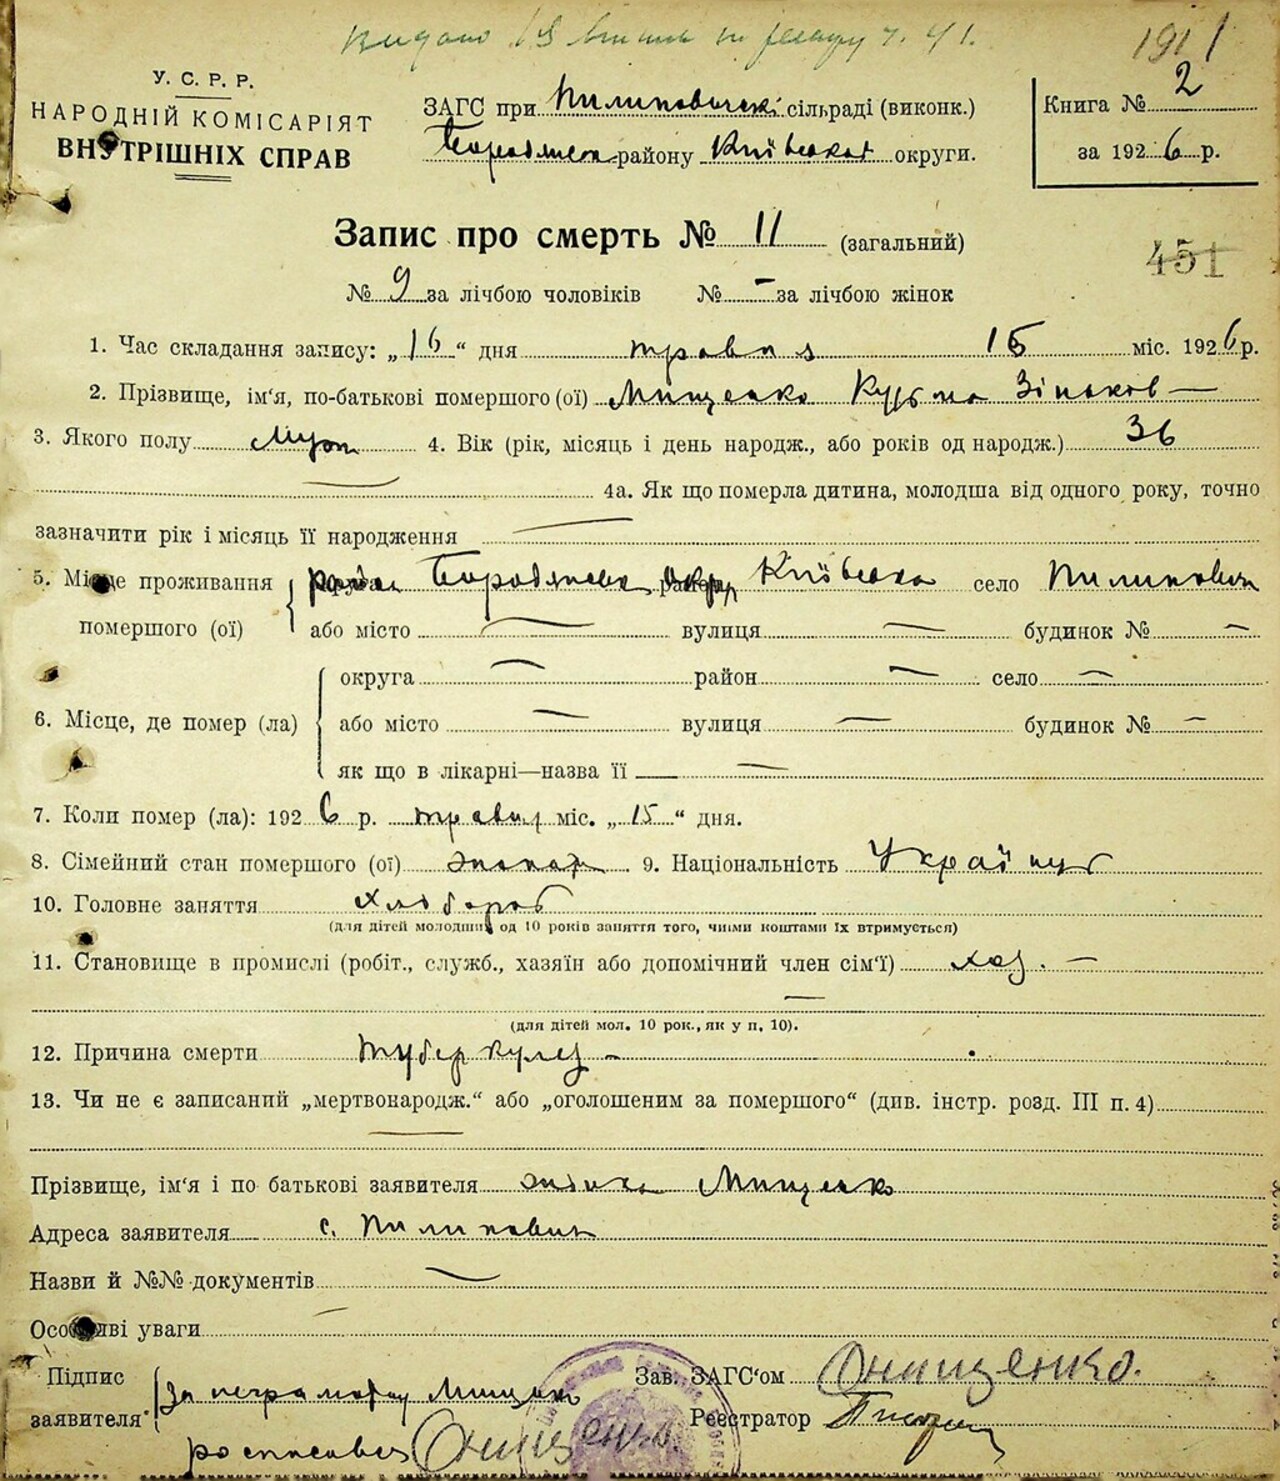 Видано
1911
У. С. Р. Р.
НАРОДНІЙ КОМІСАРІЯТ
ВНУТРІШНІХ СПРАВ
ЗАГС при Пилиповичскі сільраді (виконк.)
Бородянск. району Київської округи.
Книга № 2
за 1926 р.
Запис про смерть № 11 (загальний)
451
№ 9 за лічбою чоловіків № - за лічбою жінок
1. Час складання запису: „16“ дня травня 16 міс. 1926 р.
2. Прізвище, ім'я, по-батькові помершого (ої) Мищенко Кузьма Зіньков —
3. Якого полу Муж. 4. Вік (рік, місяць і день народж., або років од народж.) 36
— 4а. Як що померла дитина, молодша від одного року, точно
зазначити рік і місяць її народження —
5. Місце проживання помершого (ої) район Бородянськ округ Київська село Пилиповичі
або місто — вулиця — будинок № —
6. Місце, де помер (ла) округа — район — село —
або місто — вулиця — будинок № —
як що в лікарні—назва її —
7. Коли помер (ла): 1926 р. травня міс. „15“ дня.
8. Сімейний стан помершого (ої) 9. Національність Українц
10. Головне заняття Хлібороб
(для дітей молодших од 10 років заняття того, чиїми коштами їх втримується)
11. Становище в промислі (робіт., служб., хазяїн або допомічний член сім'ї) хаз. —
—
(для дітей мол. 10 рок., як у п. 10).
12. Причина смерти туберкулез —
13. Чи не є записаний „мертвонародж.“ або „оголошеним за помершого“ (див. інстр. розд. III п. 4)
—
Прізвище, ім'я і по батькові заявителя Мищенко
Адреса заявителя с. Пилиповичі
Назви й №№ документів —
Особливі уваги —
Підпис заявителя За неграмотну Мищенко
росписався Онищенко.
Зав. ЗАГС'ом Онищенко.
Реєстратор